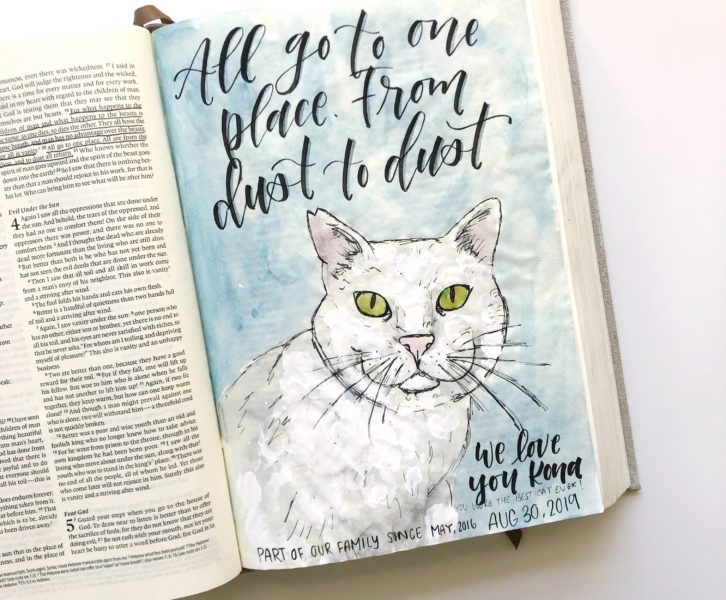 ousness, even there was wickedness. 17 I said in
heart, God will judge the righteous and the wicked,
there is a time for every matter and for every work.
said in my heart with regard to the children of man
God is testing them that they may see that they
themselves are but beasts. 19 For what happens to the
children of man and what happens to the beasts is
the same; as one dies, so dies the other. They all have the
same breath, and man has no advantage over the beasts,
for all is vanity. 20 All go to one place. All are from the
dust, and to dust all return. 21 Who knows whether the
spirit of man goes upward and the spirit of the beast goes
down into the earth? 22 So I saw that there is nothing bet-
ter than that a man should rejoice in his work, for that is
his lot. Who can bring him to see what will be after him?
Evil Under the Sun
4 Again I saw all the oppressions that are done under
the sun. And behold, the tears of the oppressed, and
they had no one to comfort them! On the side of their
oppressors there was power, and there was no one to
comfort them. 2 And I thought the dead who are already
dead more fortunate than the living who are still alive.
3 But better than both is he who has not yet been and
has not seen the evil deeds that are done under the sun.
4 Then I saw that all toil and all skill in work come
from a man's envy of his neighbor. This also is vanity
and a striving after wind.
5 The fool folds his hands and eats his own flesh.
6 Better is a handful of quietness than two hands full
of toil and a striving after wind.
7 Again, I saw vanity under the sun: 8 one person who
has no other, either son or brother, yet there is no end to
all his toil, and his eyes are never satisfied with riches, so
that he never asks, "For whom am I toiling and depriving
myself of pleasure?" This also is vanity and an unhappy
business.
9 Two are better than one, because they have a good
reward for their toil. 10 For if they fall, one will lift up
his fellow. But woe to him who is alone when he falls
and has not another to lift him up! 11 Again, if two lie
together, they keep warm, but how can one keep warm
alone? 12 And though a man might prevail against one
who is alone, two will withstand him—a threefold cord
is not quickly broken.
13 Better was a poor and wise youth than an old and
foolish king who no longer knew how to take advice.
14 For he went from prison to the throne, though in his
own kingdom he had been born poor. 15 I saw all the
living who move about under the sun, along with that
youth who was to stand in the king's place. 16 There was
no end of all the people, all of whom he led. Yet those
who come later will not rejoice in him. Surely this also
is vanity and a striving after wind.
Fear God
5 Guard your steps when you go to the house of
God. To draw near to listen is better than to offer
the sacrifice of fools, for they do not know that they are
doing evil. 2 Be not rash with your mouth, nor let your
heart be hasty to utter a word before God, for God is in
All go to one
place. From
dust to dust
we love
you Kona
YOU WERE THE BEST CAT EVER!
PART OF OUR FAMILY SINCE MAY, 2016 AUG 30, 2019